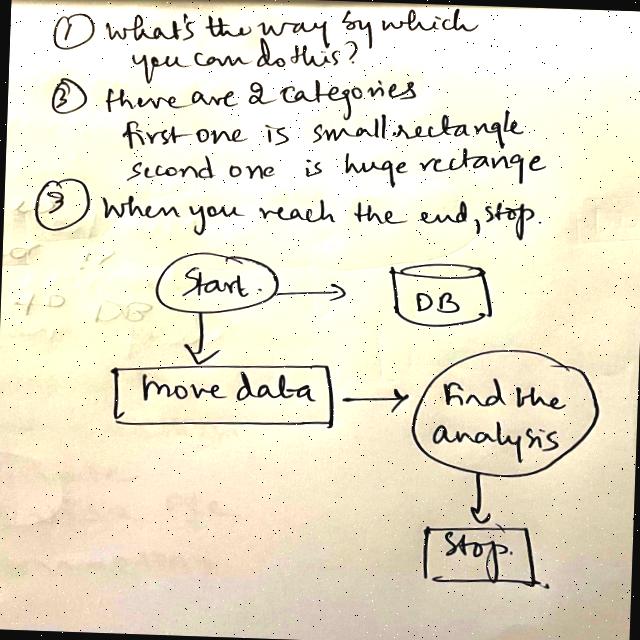 ① What's the way by which
you can do this?
② there are 2 categories
first one is small rectangle
second one is huge rectange
③ When you reach the end, stop.
Start.
DB
move data
Find the
analysis
Stop.